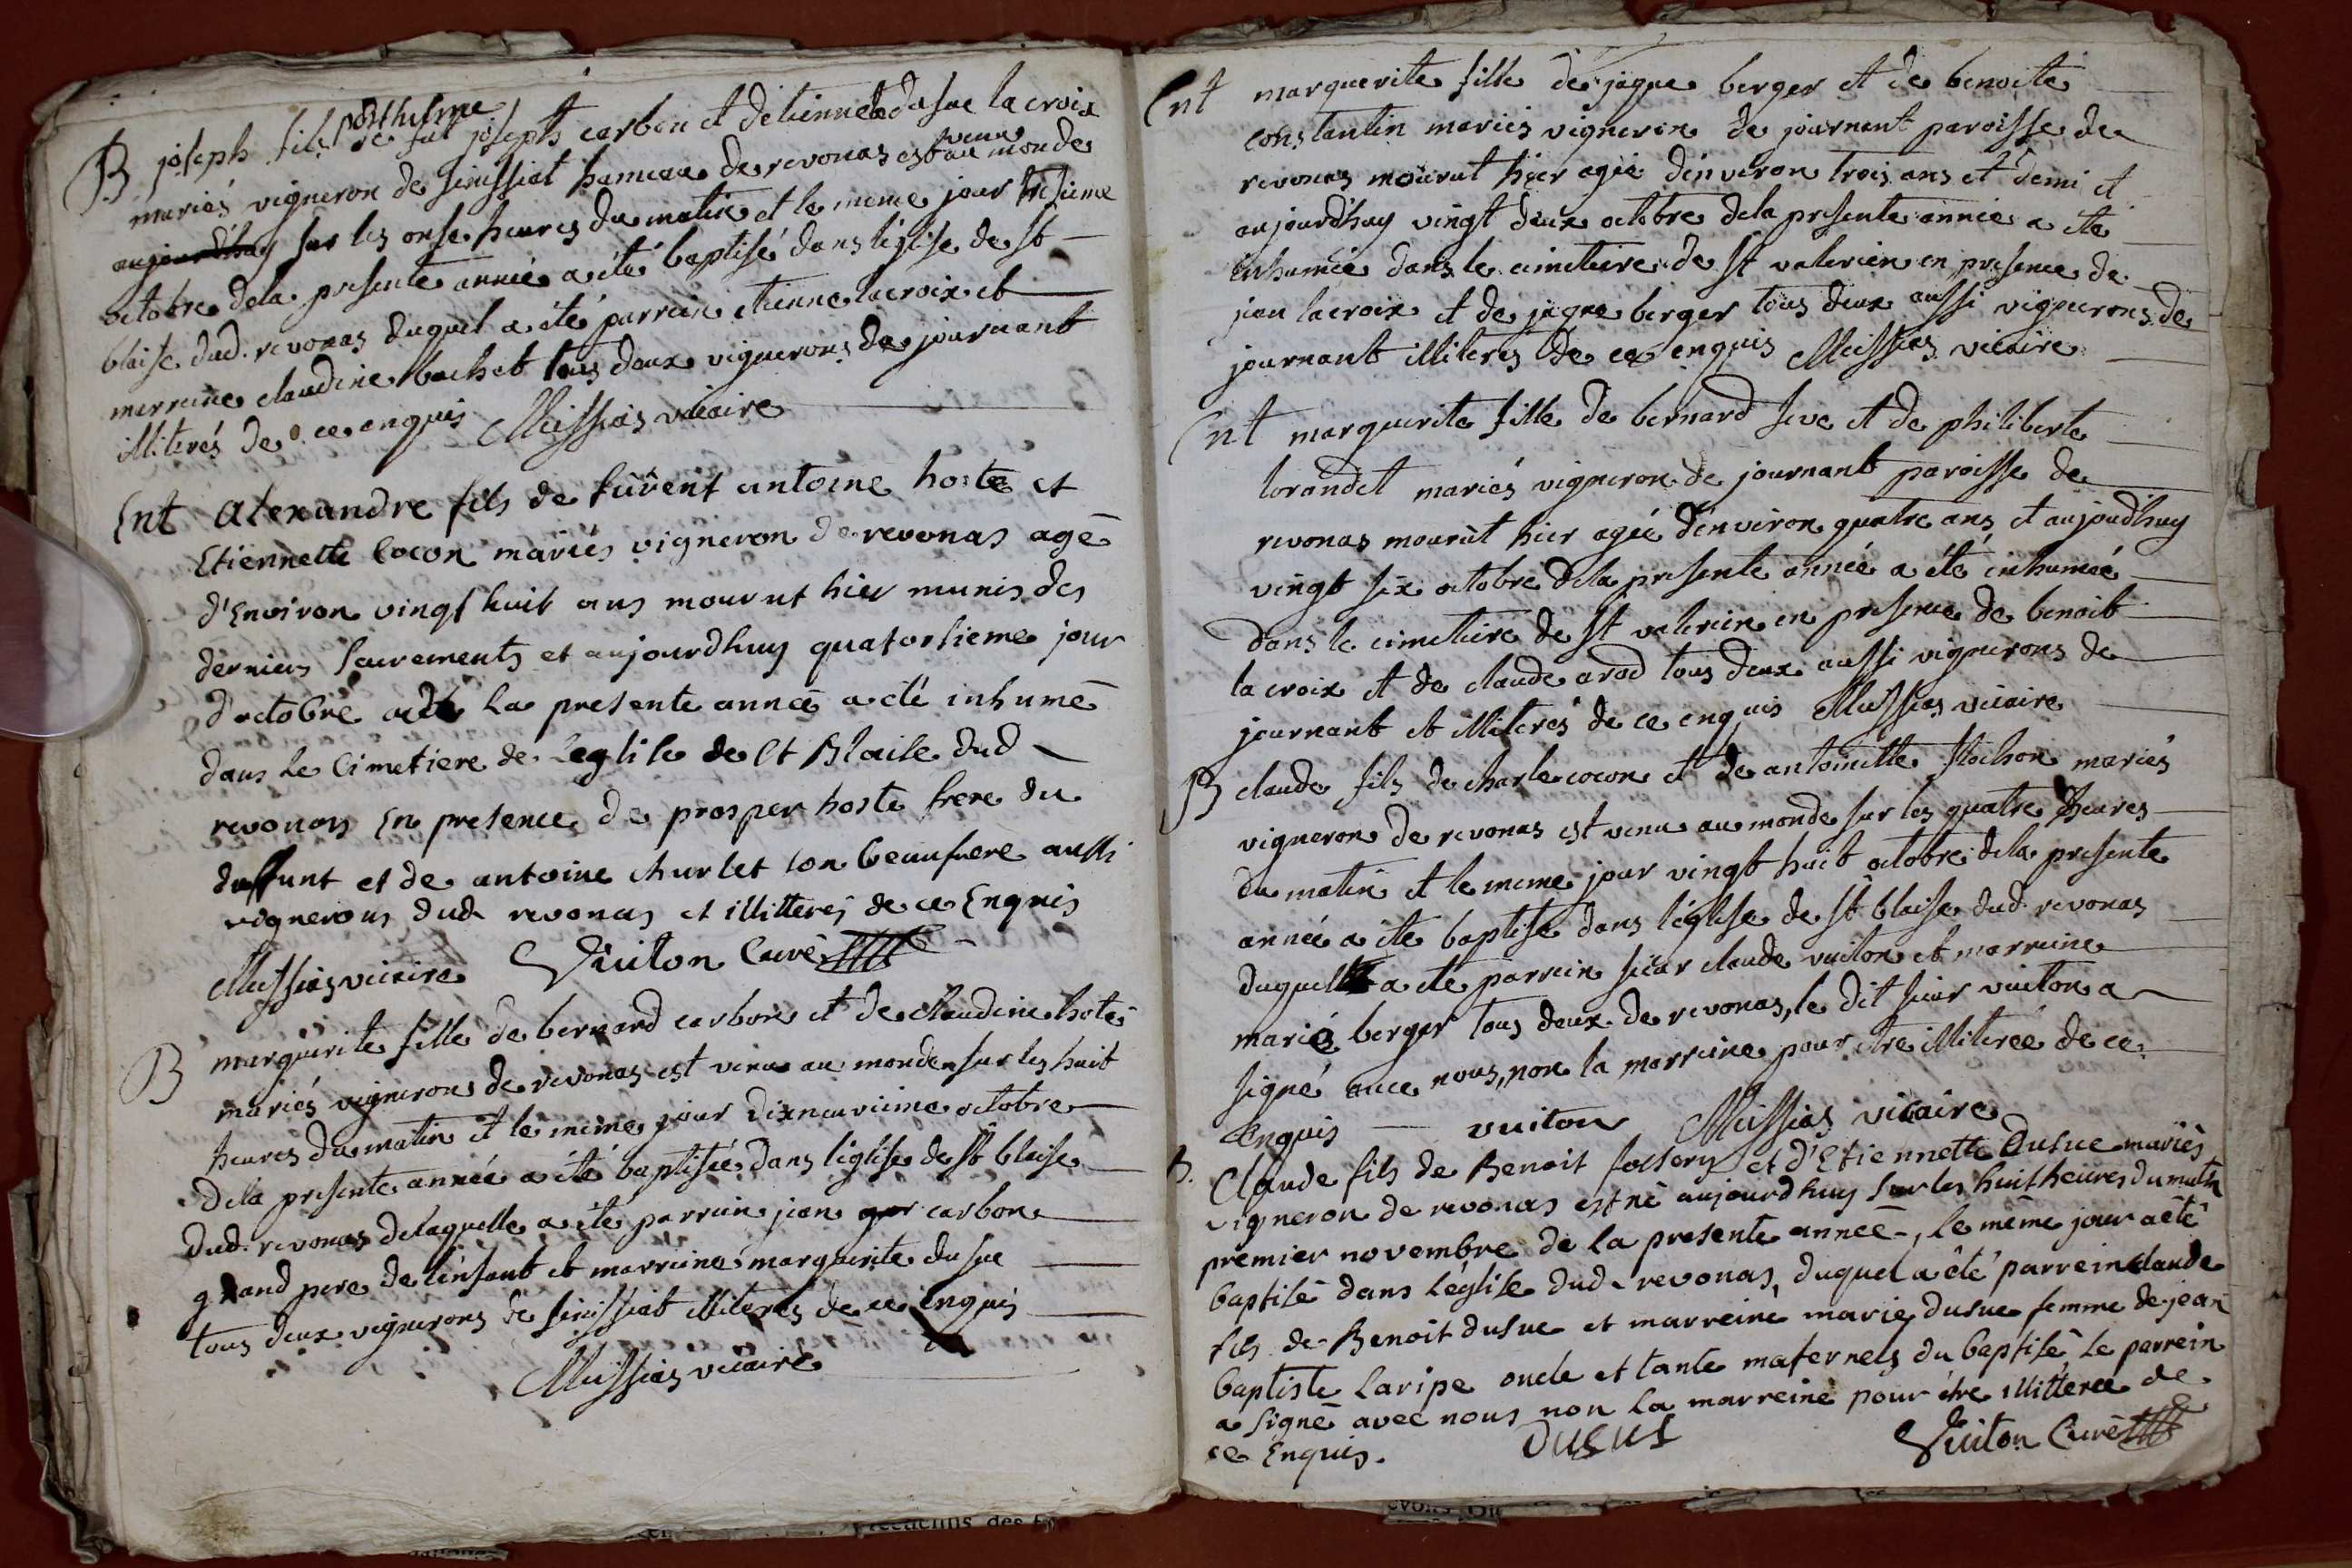 posthume
B joseph fils de fut joseph carbon et detiennete dusue la croix
mariés vigneron de senissiat hameau de revonas est venu au monde
aujourdhuy sur les onse heures du matin et le meme jour tresieme
octobre dela presente année a été baptisé dans l'église de st
blaise dud. revonas duquel a été parrein etienne lacroix et
marreine claudine bachet tous deux vignerons de journant
illiterés de ce enquis Meissias vicaire
Ent Alexandre fils de furent antoine hoste et
Etiennette Cocon mariés vigneron de revonas agé
d'Environ vingt huit ans mourut hier munis des
derniers Sacrements et aujourdhuy quatorsieme jour
d'octobre de La presente année a été inhumé
dans Le Cimetiere de Leglise de St Blaise dud
revonas En presence de prosper hoste frere du
deffunt et de antoine churlet son beaufrere aussi
vignerons dud. revonas et illitterés de ce Enquis
Meissias vicaire Vuiton Curé
B marguerite fille de bernard carbon et de claudine hote
mariés vignerons de revonas est venu au monde sur les huit
heures du matin et le même jour dixneuvieme octobre
dela presente année a été baptisée dans l'église de st blaise
dud. revonas delaquelle a été parrein jean carbon
grand pere de lenfant et marreine marguerite dusue
tous deux vignerons de senissiat illiterés de ce enquis
Meissias vicaire
Ent marguerite fille de jaque berger et de benoite
constantin mariés vigneron de journant paroisse de
revonas mourut hier agée denviron trois ans et demi et
aujourdhuy vingt deux octobre dela presente année a été
inhumée dans le cimetiere de st valerien en presence de
jean lacroix et de jaque berger tous deux aussi vignerons de
journant illiterés de ce enquis Meissias vicaire
Ent marguerite fille de bernard seve et de philiberte
lorandet mariés vigneron de journant paroisse de
revonas mourut hier agée denviron quatre ans et aujoudhuy
vingt six octobre dela presente année a été inhumée
dans le cimetiere de st valerien en presence de benoit
la croix et de claude arod tous deux aussi vignerons de
journant et illiterés de ce enquis Meissias vicaire
B claude fils de charle cocon et de antoinette flochon mariés
vigneron de revonas est venu au monde sur les quatre heures
du matin et le meme jour vingt huit octobre dela presente
année a été baptisé dans l'église de st blaise dud. revonas
duquel a été parrein sieur claude vuiton et marreine
marie berger tous deux de revonas, le dit sieur vuiton a
signé avec nous, non la marreine pour etre illiterée de ce
Enquis vuiton Meissias vicaire
B. Claude fils de Benoit foissery et d'Etiennette Dusue mariés
vigneron de revonas est né aujourdhuy sur les huit heures du matin
premier novembre de La presente année, Le même jour a été
baptisé dans L'église dud. revonas, duquel a été parrein claude
fils de Benoit dusue et marreine marie dusue femme de jean
baptiste Laripe oncle et tante maternels du baptisé Le parrein
a Signé avec nous non La marreine pour être illitterée de
ce Enquis. DUSUS Vuiton Curé